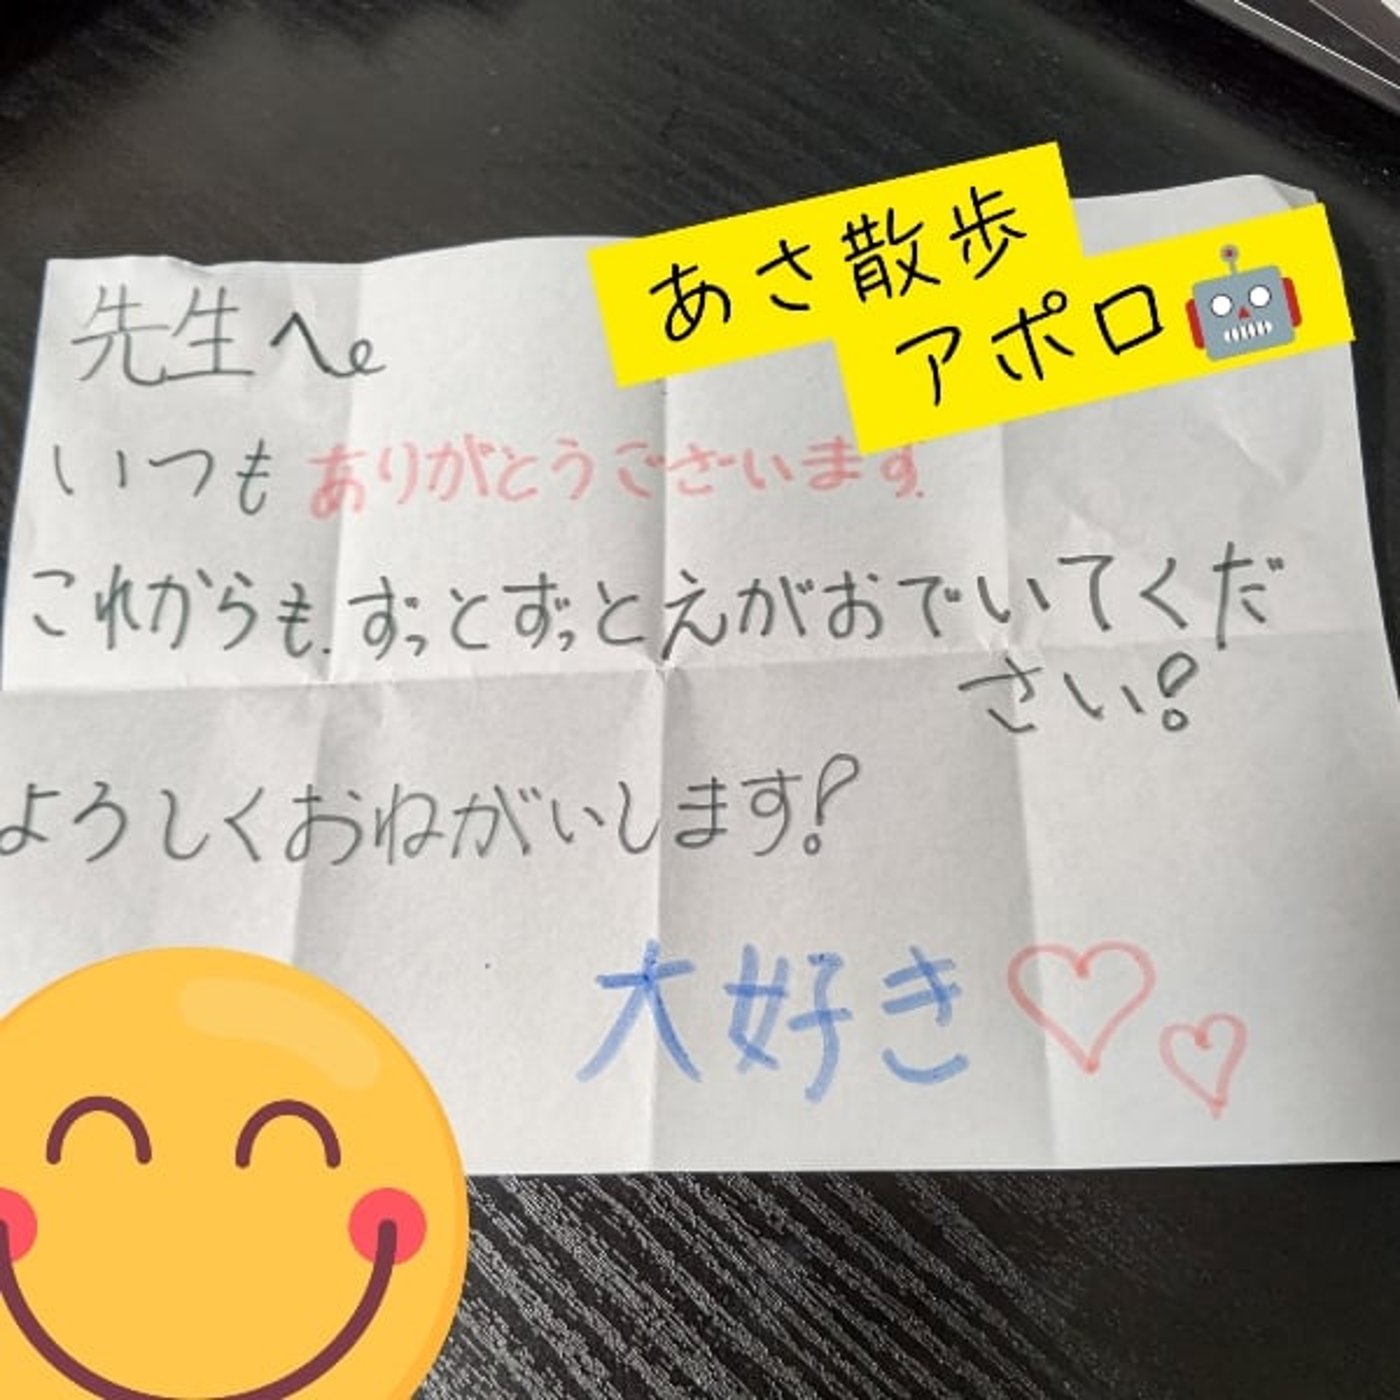 あさ散歩
アポロ
先生へ
いつもありがとうございます.
これからも.ずっとずっとえがおでいてくだ
さい!
よろしくおねがいします!
大好き